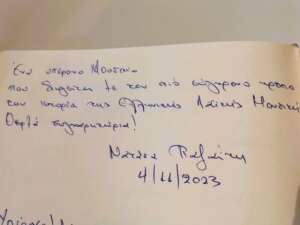 Ένα υπέροχο Μουσείο
που διηγείται με τον πιο εύγλωττο τρόπο
την ιστορία της Ελληνικής Λαϊκής Μουσικής
Θερμά συγχαρητήρια!
Νατάσα
4/11/2023